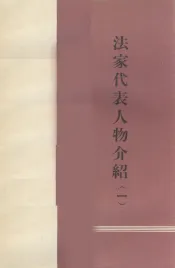 法家代表人物介紹(一)